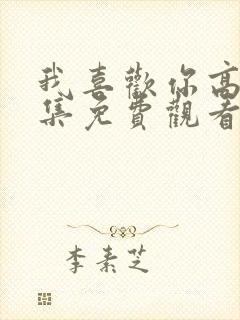 我喜歡你高
集免費觀看
李素芝